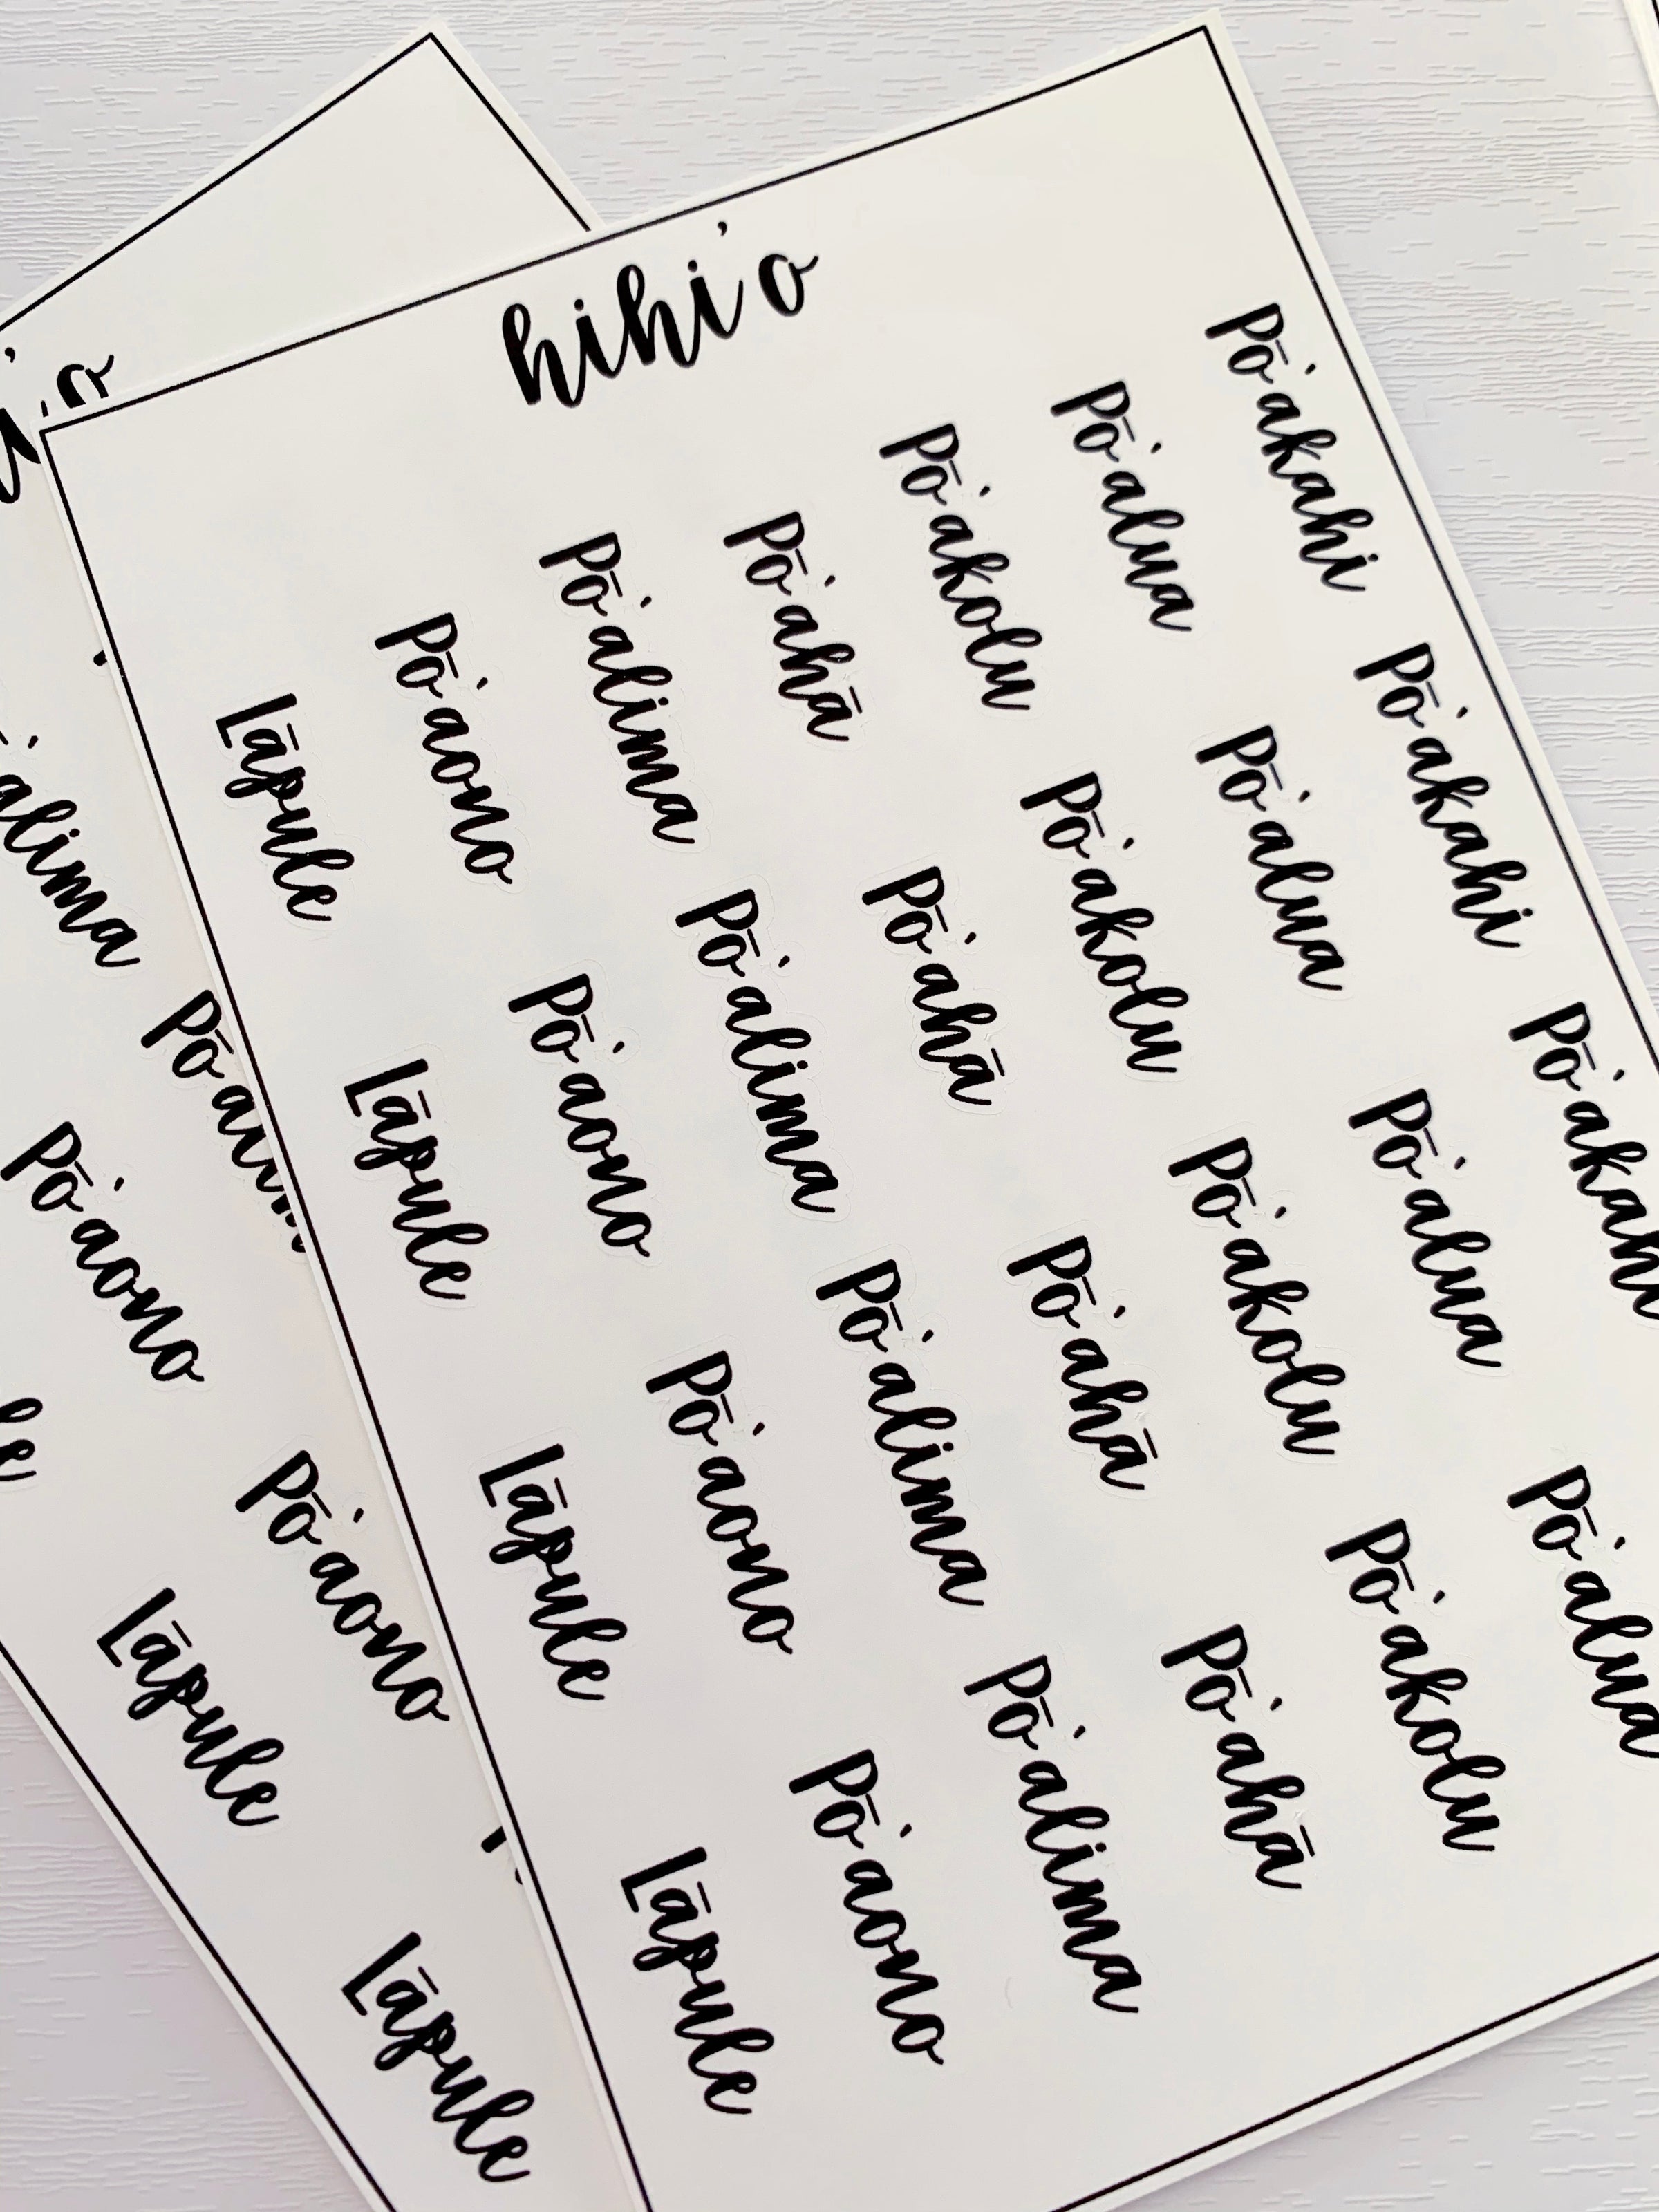 hihi'o
Pō'akahi Pō'akahi Pō'akahi
Pō'alua Pō'alua Pō'alua Pō'alua
Pō'akolu Pō'akolu Pō'akolu Pō'akolu
Pō'ahā Pō'ahā Pō'ahā Pō'ahā
Pō'alima Pō'alima Pō'alima Pō'alima
Pō'aono Pō'aono Pō'aono Pō'aono
Lāpule Lāpule Lāpule Lāpule
'alima
Pō'aono Pō'aono
Lāpule Lāpule